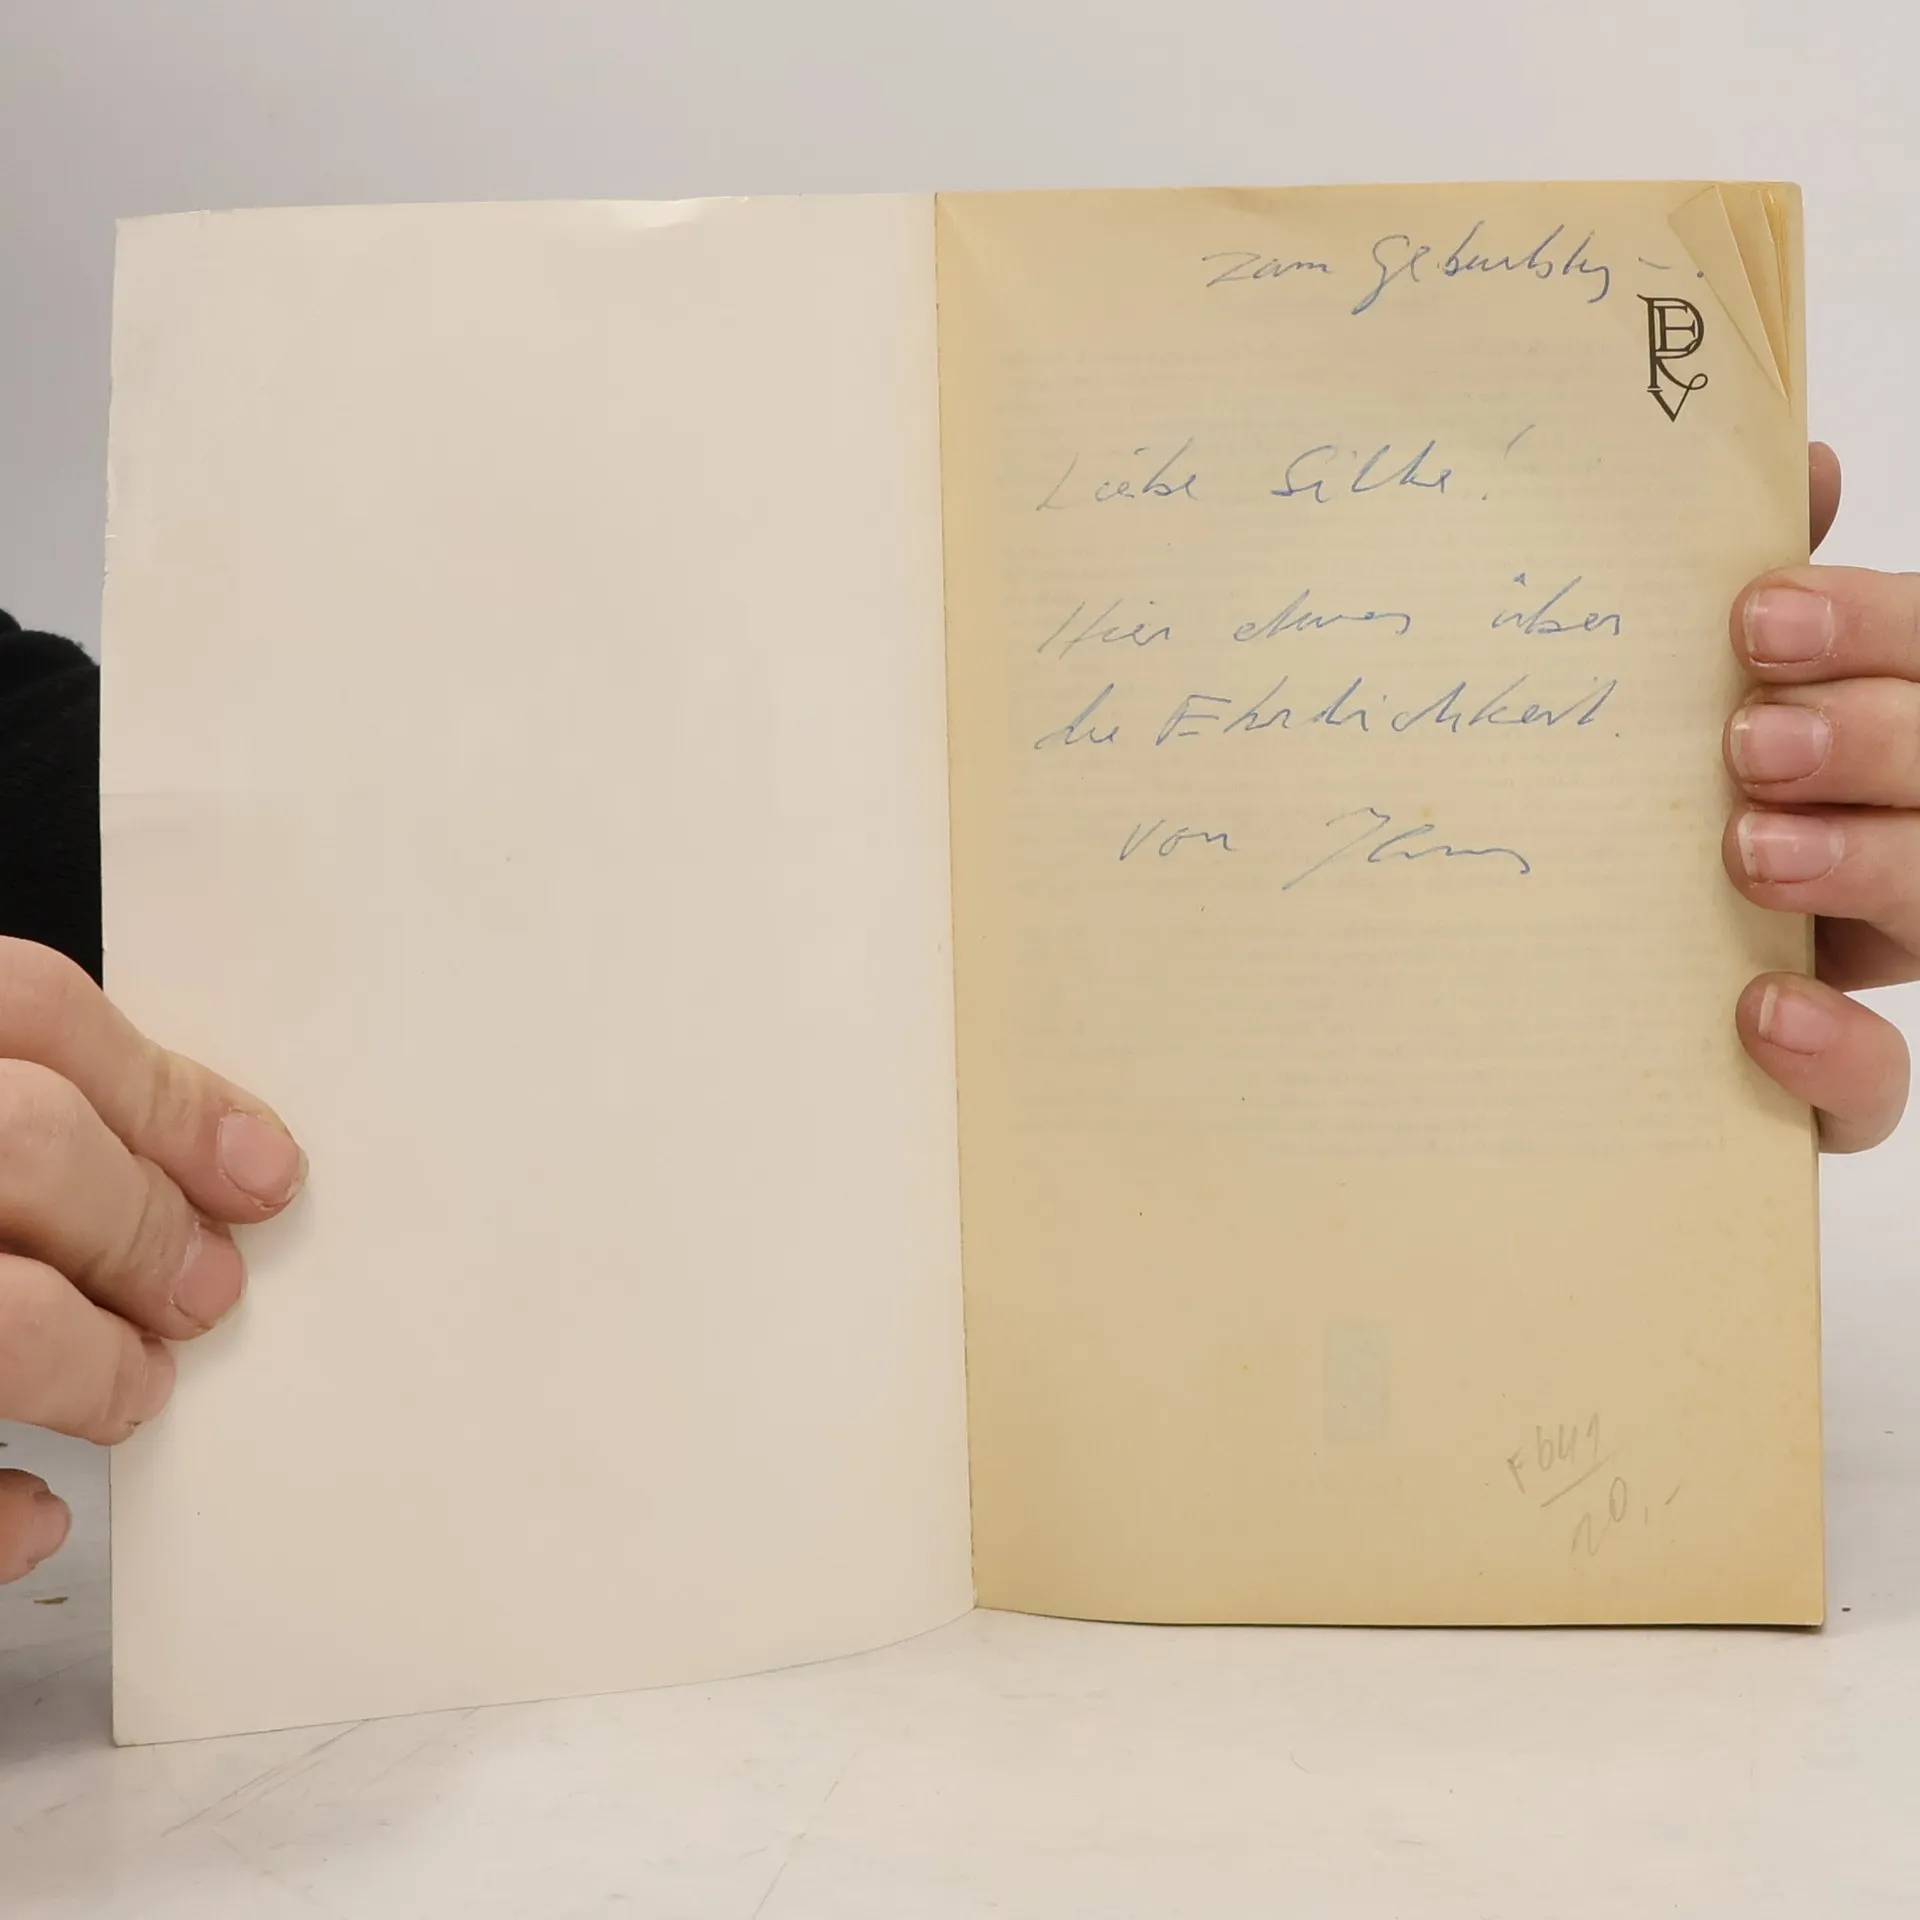 zum Geburtstag –.
PEV
Liebe Silke!
Hier etwas über
die Ehrlichkeit.
von
20,-